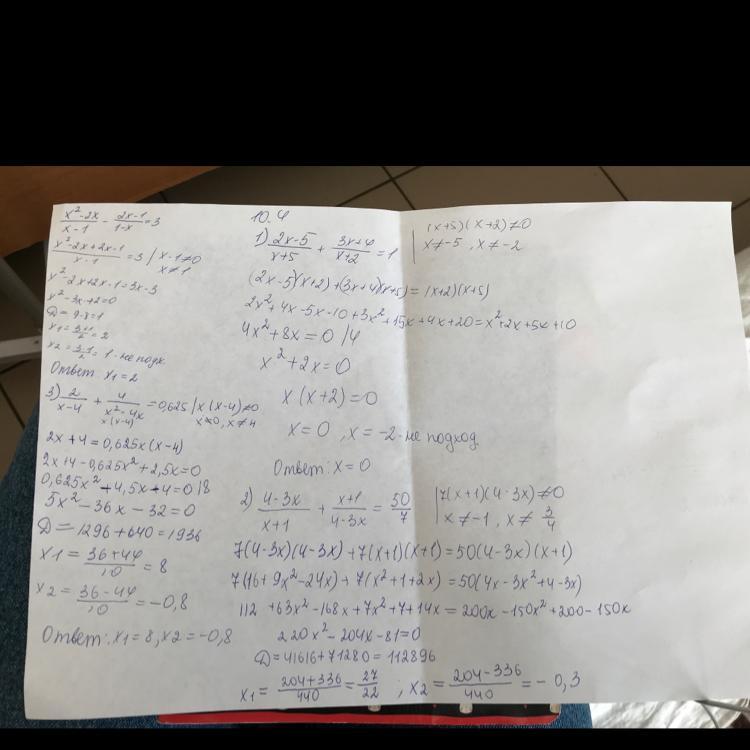 x²-2x/x-1 - 2x-1/1-x = 3
x²-2x+2x-1/x-1 = 3 | x-1≠0
x≠1
x²-2x+2x-1=3x-3
x²-3x+2=0
D=9-8=1
x1=3+1/2=2
x2=3-1/2=1-не подх
Ответ: x1=2
3) 2/x-4 + 4/x²-4x = 0,625 | x(x-4)≠0
x(x-4) x≠0, x≠4
2x+4=0,625x(x-4)
2x+4-0,625x²+2,5x=0
0,625x²-4,5x-4=0 |8
5x²-36x-32=0
D=1296+640=1936
x1=36+44/10=8
x2=36-44/10=-0,8
Ответ: x1=8, x2=-0,8
10.4
1) 2x-5/x+5 + 3x+4/x+2 = 1
(x+5)(x+2)≠0
x≠-5, x≠-2
(2x-5)(x+2)+(3x+4)(x+5)=(x+2)(x+5)
2x²+4x-5x-10+3x²+15x+4x+20=x²+2x+5x+10
4x²+8x=0 |4
x²+2x=0
x(x+2)=0
x=0, x=-2-не подход
Ответ: x=0
2) 4-3x/x+1 + x+1/4-3x = 50/7
7(x+1)(4-3x)≠0
x≠-1, x≠3/4
7(4-3x)(4-3x)+7(x+1)(x+1)=50(4-3x)(x+1)
7(16+9x²-24x)+7(x²+1+2x)=50(4x-3x²+4-3x)
112+63x²-168x+7x²+7+14x=200x-150x²+200-150x
220x²-204x-81=0
D=41616+71280=112896
x1=204+336/440=27/22; x2=204-336/440=-0,3